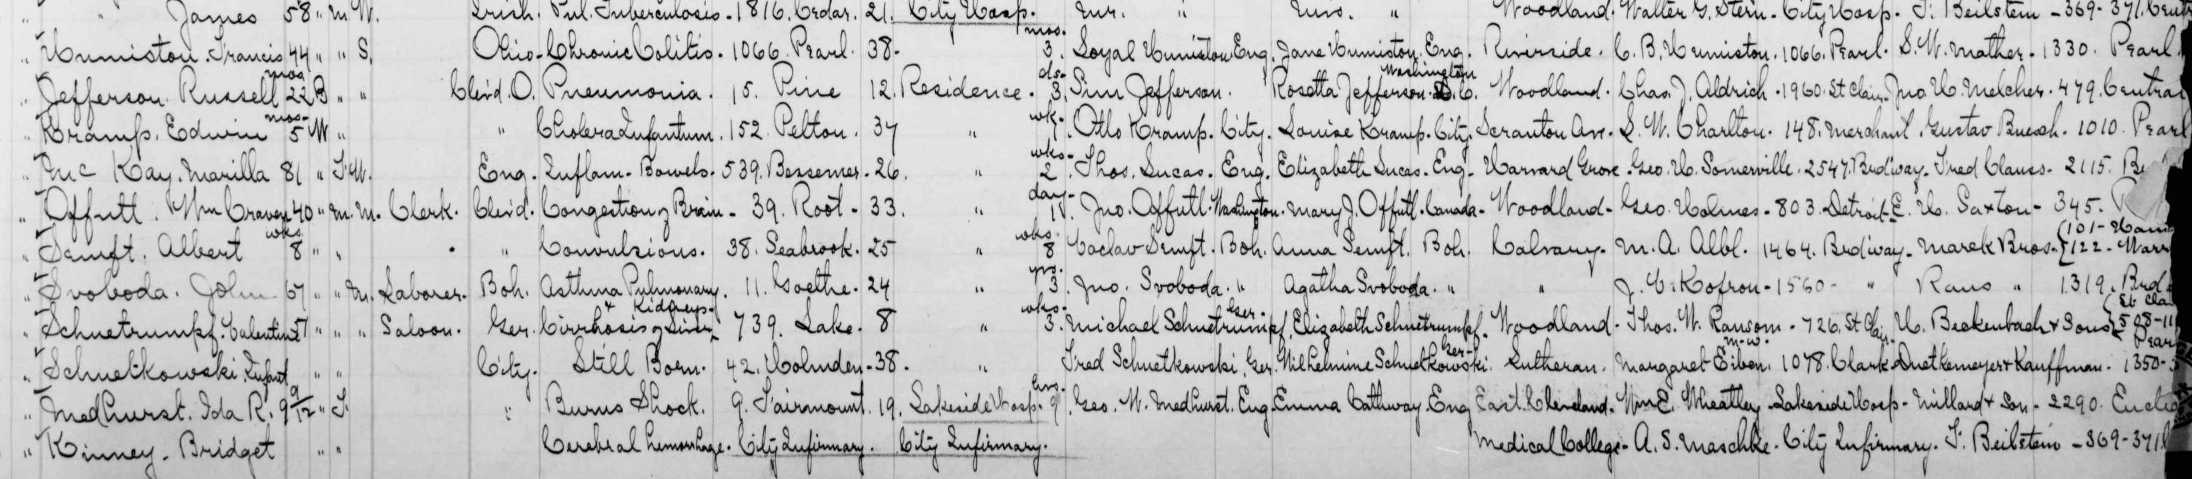 " " James 58 " M. W. Irish. Pul. Tuberculosis - 1816. Cedar. 21. City Hosp. Mr. " Mrs. " Woodland. Walter G. Stern - City Hosp. F. Beilstein - 369-371. Centr
" Humiston. Francis 44 " " S. Ohio - Chronic Colitis - 1066. Pearl. 38 - 3 mos. Loyal Humiston Eng. Jane Humiston. Eng. Riverside. C. B. Humiston. 1066. Pearl. S. W. Mather - 1330. Pearl.
" Jefferson. Russell 22 mos B " " Clev'd. O. Pneumonia. 15. Pine 12. Residence. 3 ds. Sim Jefferson. Rosetta Jefferson. Washington D.C. Woodland. Chas. J. Aldrich - 1960. St Clair. Jno. H. Melcher - 479. Central
" Kramp. Edwin 5 mos. W " " Cholera Infantum. 152. Pelton. 37 " 1 wk. Otto Kramp. City. Louise Kramp. City. Scranton Ave. S. W. Charlton. 148. Merchant. Gustav Buesch. 1010. Pearl
" Mc Kay. Marilla 81 " F. W. Eng. Inflam - Bowels. 539. Bessemer - 26. " 2 wks. Thos. Lucas. Eng. Elizabeth Lucas. Eng. Harvard Grove. Geo. H. Somerville. 2547. Brdway. Fred Clauss - 2115.
" Offutt. Wm Craven 40 " M. M. Clerk. Clev'd. Congestion of Brain - 39. Root - 33. " 1 day. Jno. Offutt. Washington. Mary J. Offutt. Canada - Woodland - Geo. Holmes - 803. Detroit - E. H. Saxton - 345.
" Semft. Albert 8 wks. " " " Convulsions. 38. Seabrook. 25 " 8 wks. Vaclav Semft. Boh. Anna Semft. Boh. Calvary. M. A. Albl. 1464. Brdway. Marek Bros. {101- {122 -
" Svoboda. John 67 " " M. Laborer. Boh. Asthma Pulmonary. 11. Goethe. 24 " 3 yrs. Jno. Svoboda. " Agatha Svoboda. " " J. C. Kofron - 1560 - " Raus " 1319. Brd
" Schuetrumpf. Valentine 51 " " " Saloon. Ger. Cirrhosis of Liver & Kidneys 739. Lake. 8 " 3 wks. Michael Schuetrumpf. Ger. Elizabeth Schuetrumpf. Woodland. Thos. W. Ransom - 726. St Clair. H. Beckenbach & Sons {St Clai {508-11
" Schuetkowski. Infant " " City. Still Born. 42. Holmden - 38. " Fred Schuetkowski. Ger. Wilhelmine Schuetkowski Ger. Lutheran. Margaret Eibon. M-W. 1078. Clark. Duetkemeyer & Kauffman. Pear 1350-
" Medhurst. Ida R. 9 9/12 " F. " Burns Shock. 9. Fairmount. 19. Lakeside Hosp. 9 hrs. Geo. W. Medhurst. Eng. Emma Cathway Eng East Cleveland. Wm E. Wheatley. Lakeside Hosp - Millard & Son - 2290. Euclid
" Kinney. Bridget " " Cerebral hemorrhage. City Infirmary. City Infirmary. Medical College - A. S. Maschke. City Infirmary. F. Beilstein - 369-371